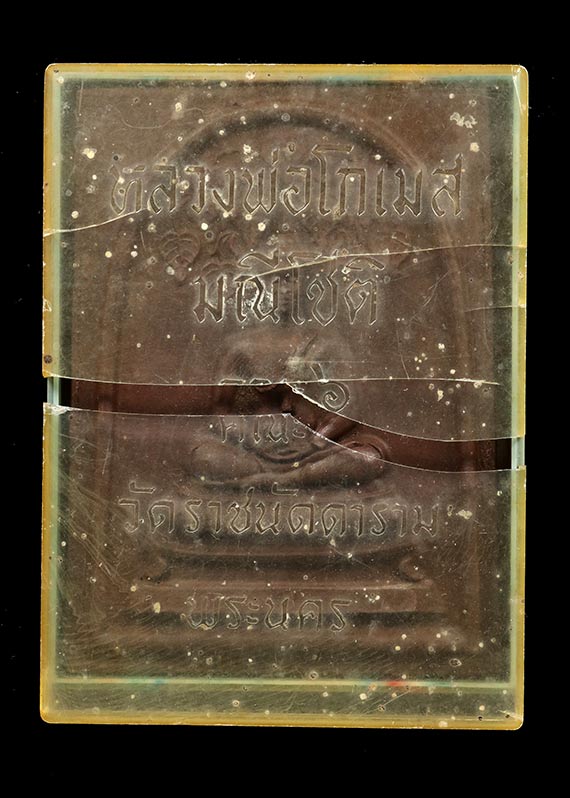 หลวงพ่อโกเมส
มณีโชติ
คณะ
วัดราชนัดดาราม
พระนคร